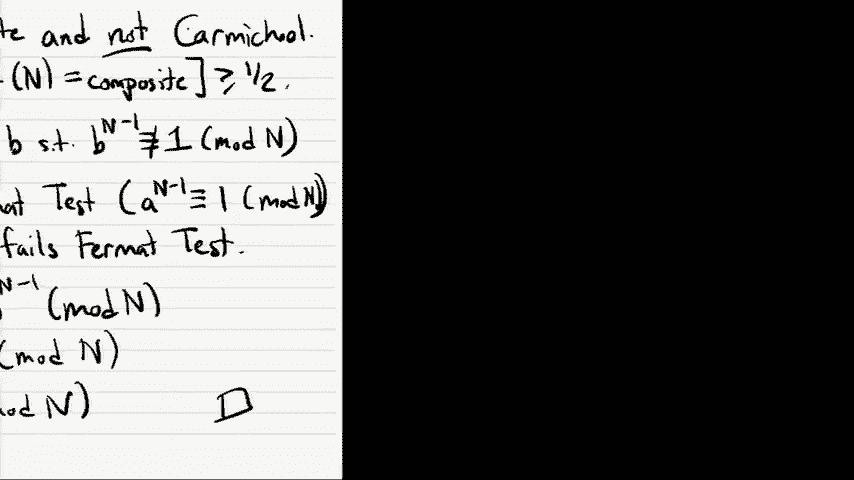 te and not Carmichael.
(N) = composite] ≥ 1/2.
b s.t. b^{N-1} ≢ 1 (mod N)
at Test (a^{N-1} ≡ 1 (mod N))
fails Fermat Test.
^{N-1} (mod N)
(mod N)
od N) □